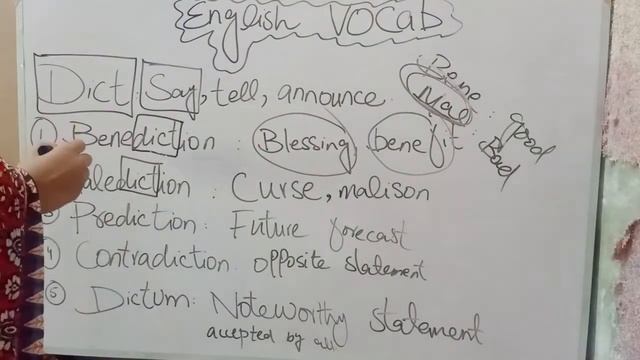 English VOCAB
Dict: Say, tell, announce.
Bene: good
Mal: Bad
① Benediction: Blessing benefit
alediction: Curse, malison
Prediction: Future forecast
④ Contradiction: opposite statement
⑤ Dictum: Noteworthy statement
accepted by all